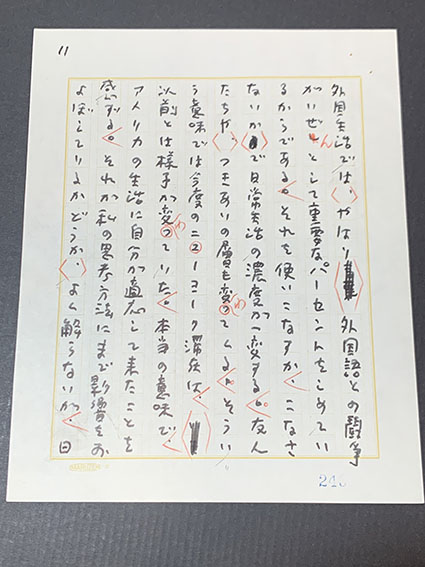 11
外国生活では、やはり外国語との闘争
がいぜんとして重要なパーセントをしめてい
るからである。それを使いこなすか、こなさ
ないかで日常生活の濃度が一変する。友人
たちや、つきあいの層も変わってくる。そうい
う意味では今度のニューヨーク滞在は、
以前とは様子が変わっていた。本当の意味で、
アメリカの生活に自分が適応して来たことを
感ずる。それが私の思考方法にまで影響をお
よぼしているかどうか、よく解らないが、日
24